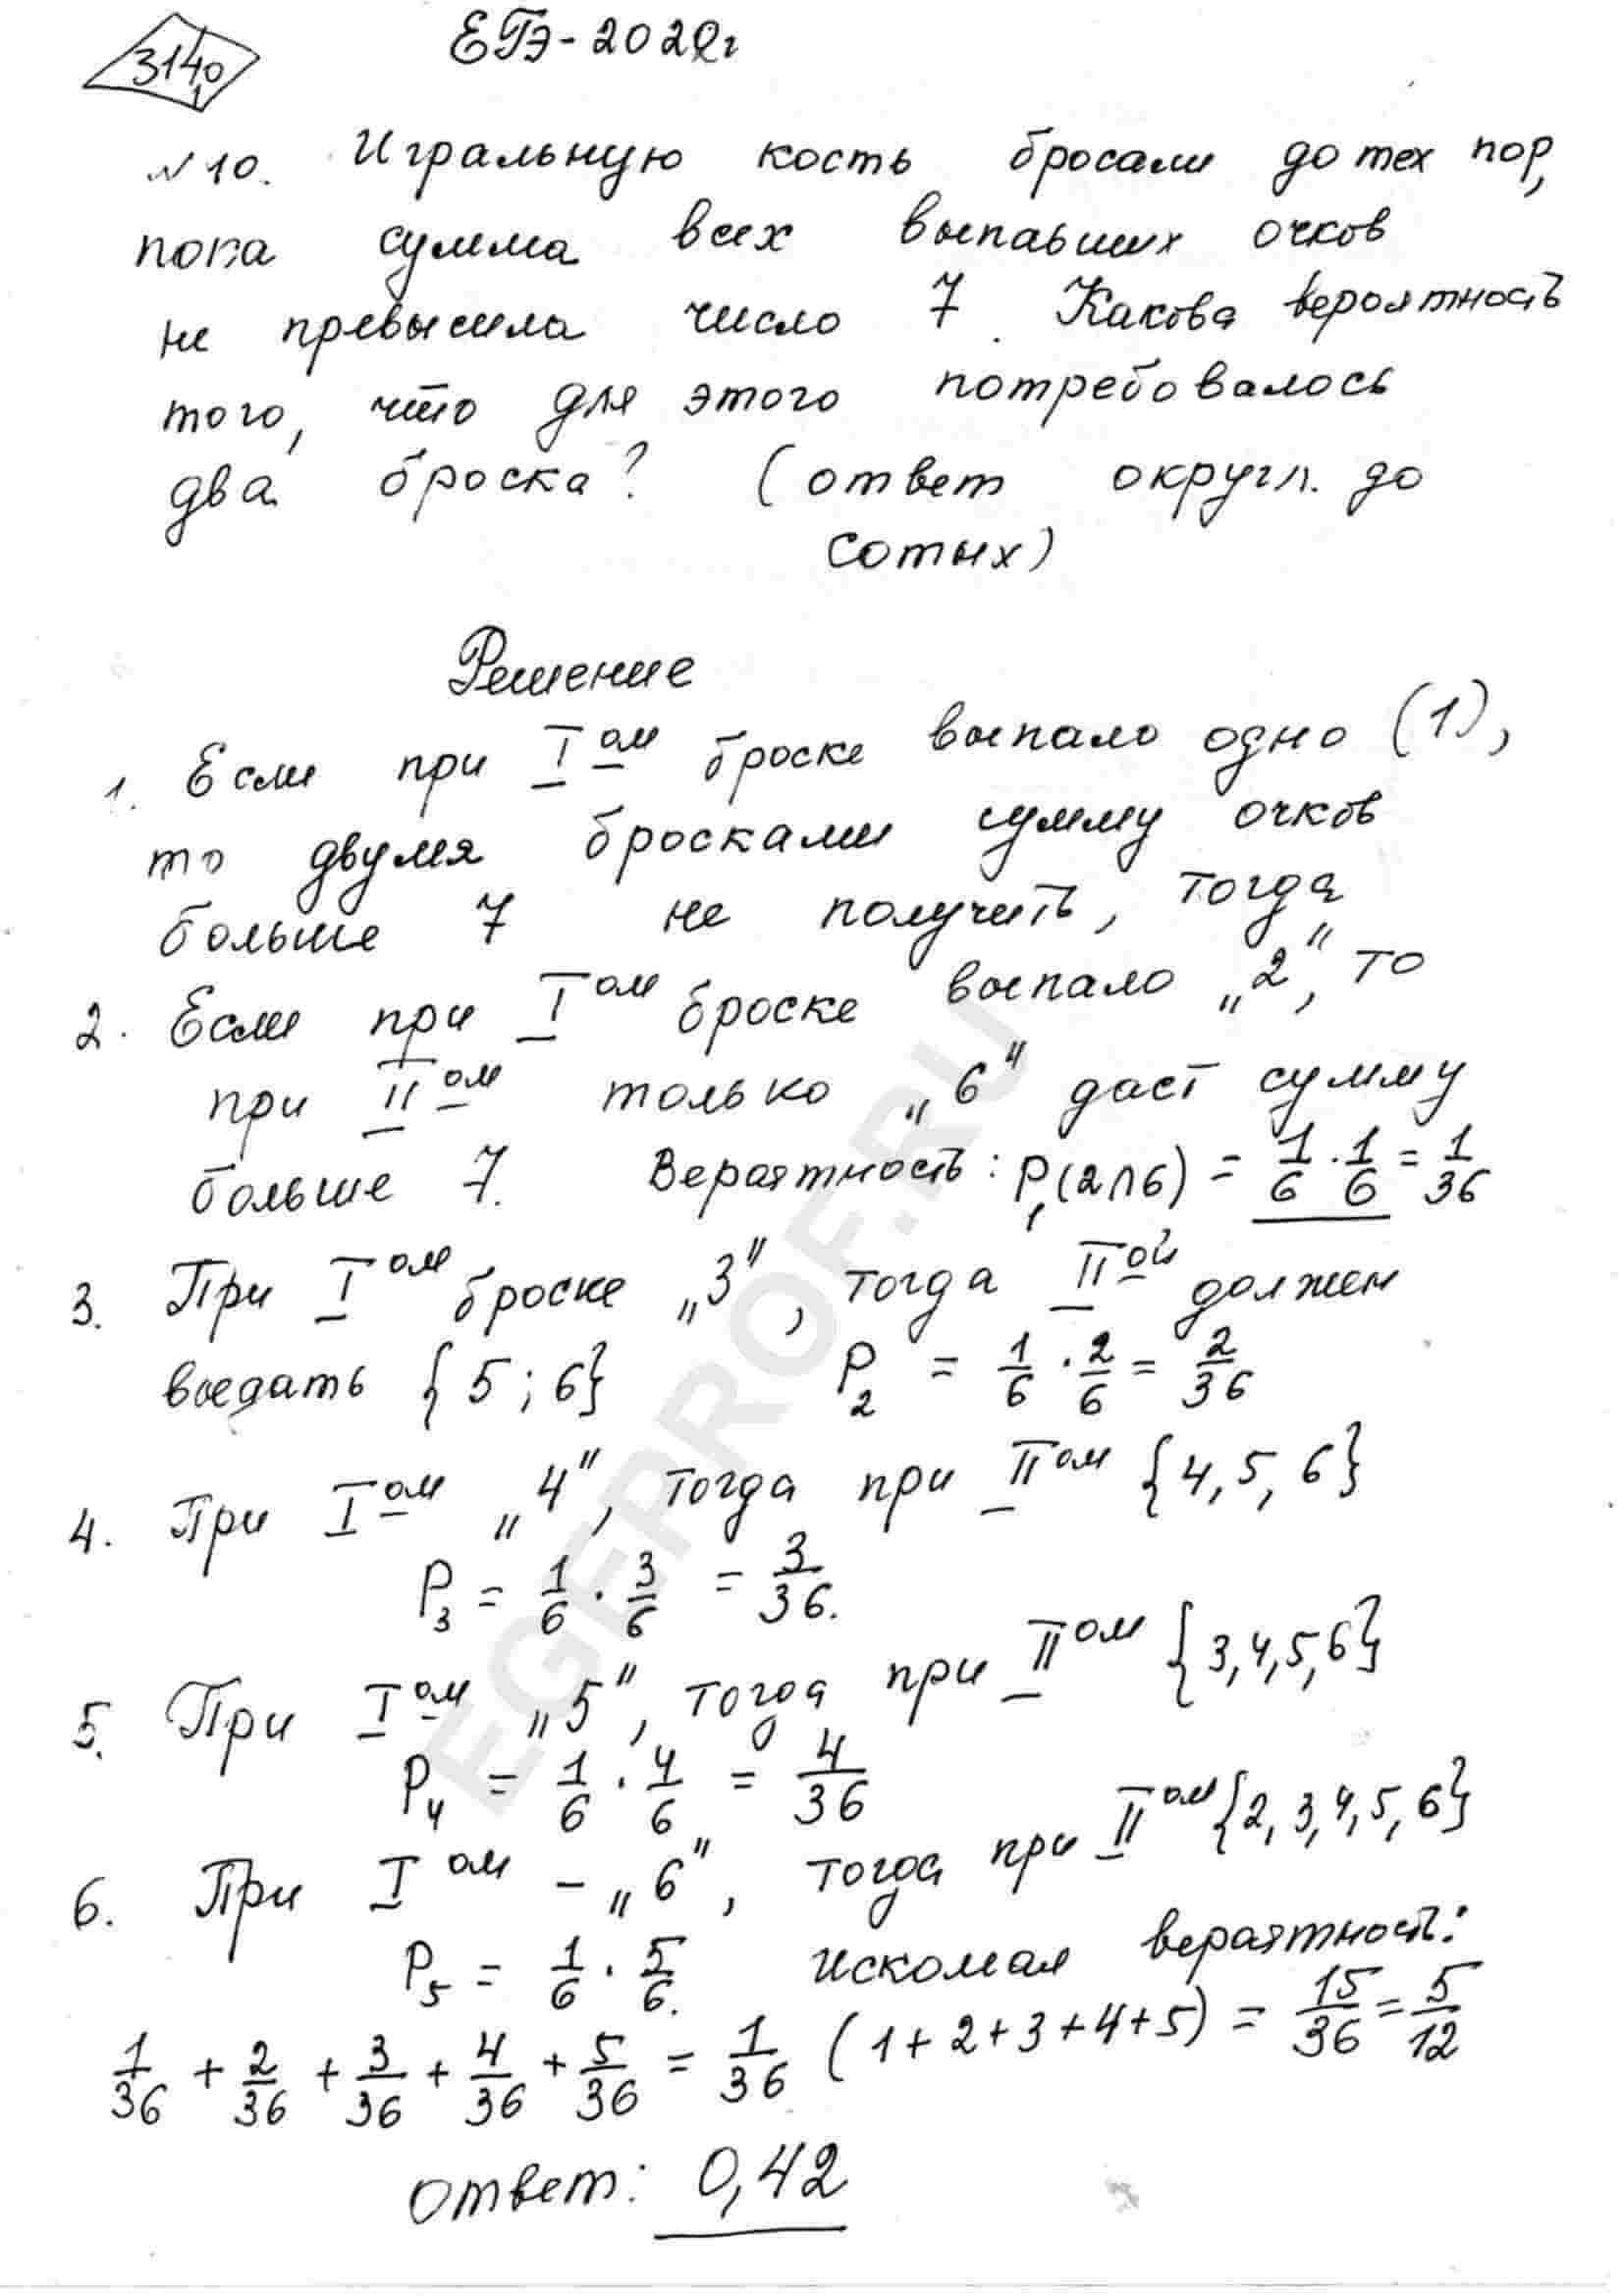 3140
1
ЕГЭ-2022г
№10. Игральную кость бросали до тех пор,
пока сумма всех выпавших очков
не превысила число 7. Какова вероятность
того, что для этого потребовалось
два броска? (ответ округл. до
сотых)
Решение
1. Если при I ом броске выпало одно (1),
то двумя бросками сумму очков
больше 7 не получить, тогда
2. Если при I ом броске выпало „2", то
при II ом только „6" даст сумму
больше 7. Вероятность: P₁(2∩6) = 1/6 · 1/6 = 1/36
3. При I ом броске „3", тогда II ой должен
выдать {5; 6} P₂ = 1/6 · 2/6 = 2/36
4. При I ом „4", тогда при II ом {4, 5, 6}
P₃ = 1/6 · 3/6 = 3/36.
5. При I ом „5", тогда при II ом {3,4,5,6}
P₄ = 1/6 · 4/6 = 4/36
6. При I ом – „6", тогда при II ом {2, 3, 4, 5, 6}
P₅ = 1/6 · 5/6. искомая вероятность:
1/36 + 2/36 + 3/36 + 4/36 + 5/36 = 1/36 (1+2+3+4+5) = 15/36 = 5/12
ответ: 0,42
EGEPROF.RU